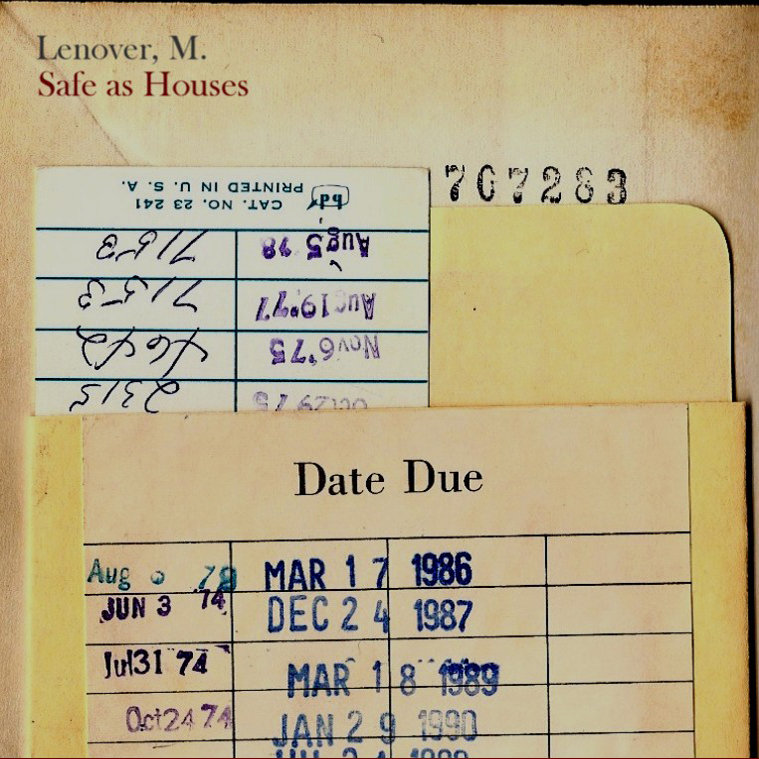 Lenover, M.
Safe as Houses
707283
Oct29 75 2315
Nov6'75 4642
Aug19'77 7153
Aug 5 78 7153
CAT. NO. 23 241
PRINTED IN U. S. A.
Date Due
Aug 78 MAR 17 1986
JUN 3 74 DEC 24 1987
Jul31 74 MAR 18 1989
Oct24 74 JAN 29 1990